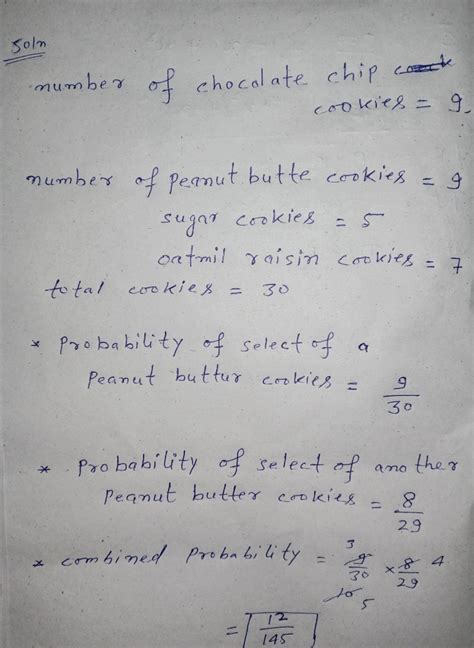 Soln
number of chocolate chip
cookies = 9
number of peanut butte cookies = 9
sugar cookies = 5
oatmil raisin cookies = 7
total cookies = 30
* Probability of select of a
Peanut buttur cookies = 9/30
* Probability of select of another
Peanut butter cookies = 8/29
* combined Probability = 9/30 × 8/29
3 10 5 4
= 12/145